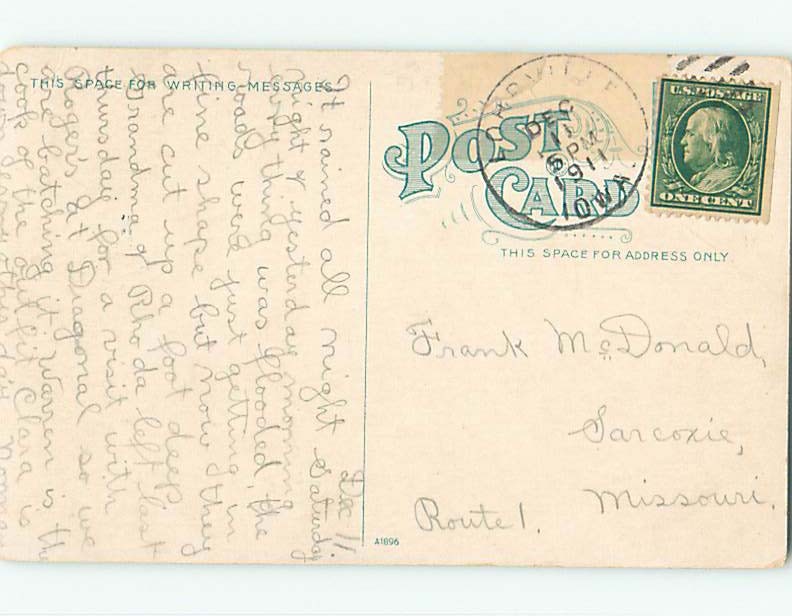 THIS SPACE FOR WRITING MESSAGES.
Dec 11.
It rained all night Saturday
night & yesterday morning
every thing was flooded, the
roads were just getting in
fine shape but now they
are cut up a foot deep
Grandma & Rhoda left last
Thursday for a visit with
Roger's at Diagonal so we
are batching it. Warren is the
cook of the outfit Clara is
down
POST CARD
DEC
11
6 PM
1911
IOWA
U.S. POSTAGE
ONE CENT
THIS SPACE FOR ADDRESS ONLY.
Frank McDonald,
Sarcoxie,
Missouri.
Route 1.
A1896